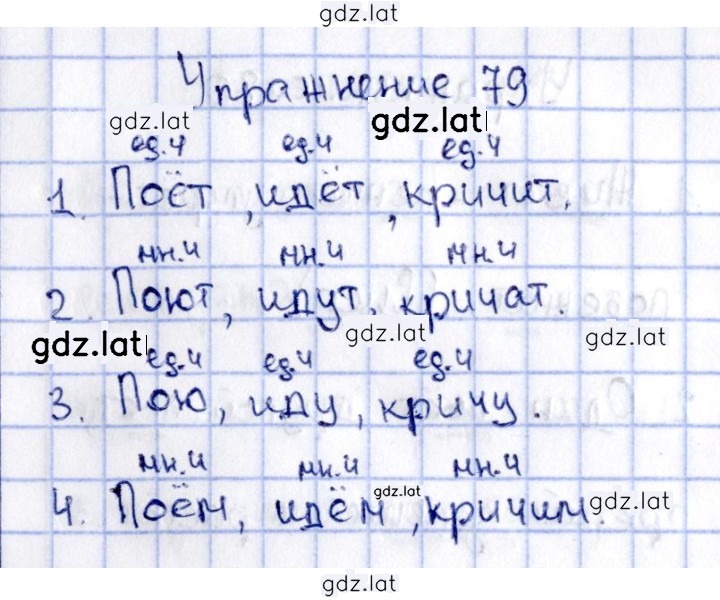 gdz.lat
Упражнение 79
gdz.lat gdz.lat
ед.ч ед.ч ед.ч
1. Поёт, идёт, кричит.
мн.ч мн.ч мн.ч
2. Поют, идут, кричат.
gdz.lat gdz.lat gdz.lat
ед.ч ед.ч ед.ч
3. Пою, иду, кричу.
мн.ч мн.ч мн.ч
4. Поём, идём, кричим.
gdz.lat gdz.lat
gdz.lat